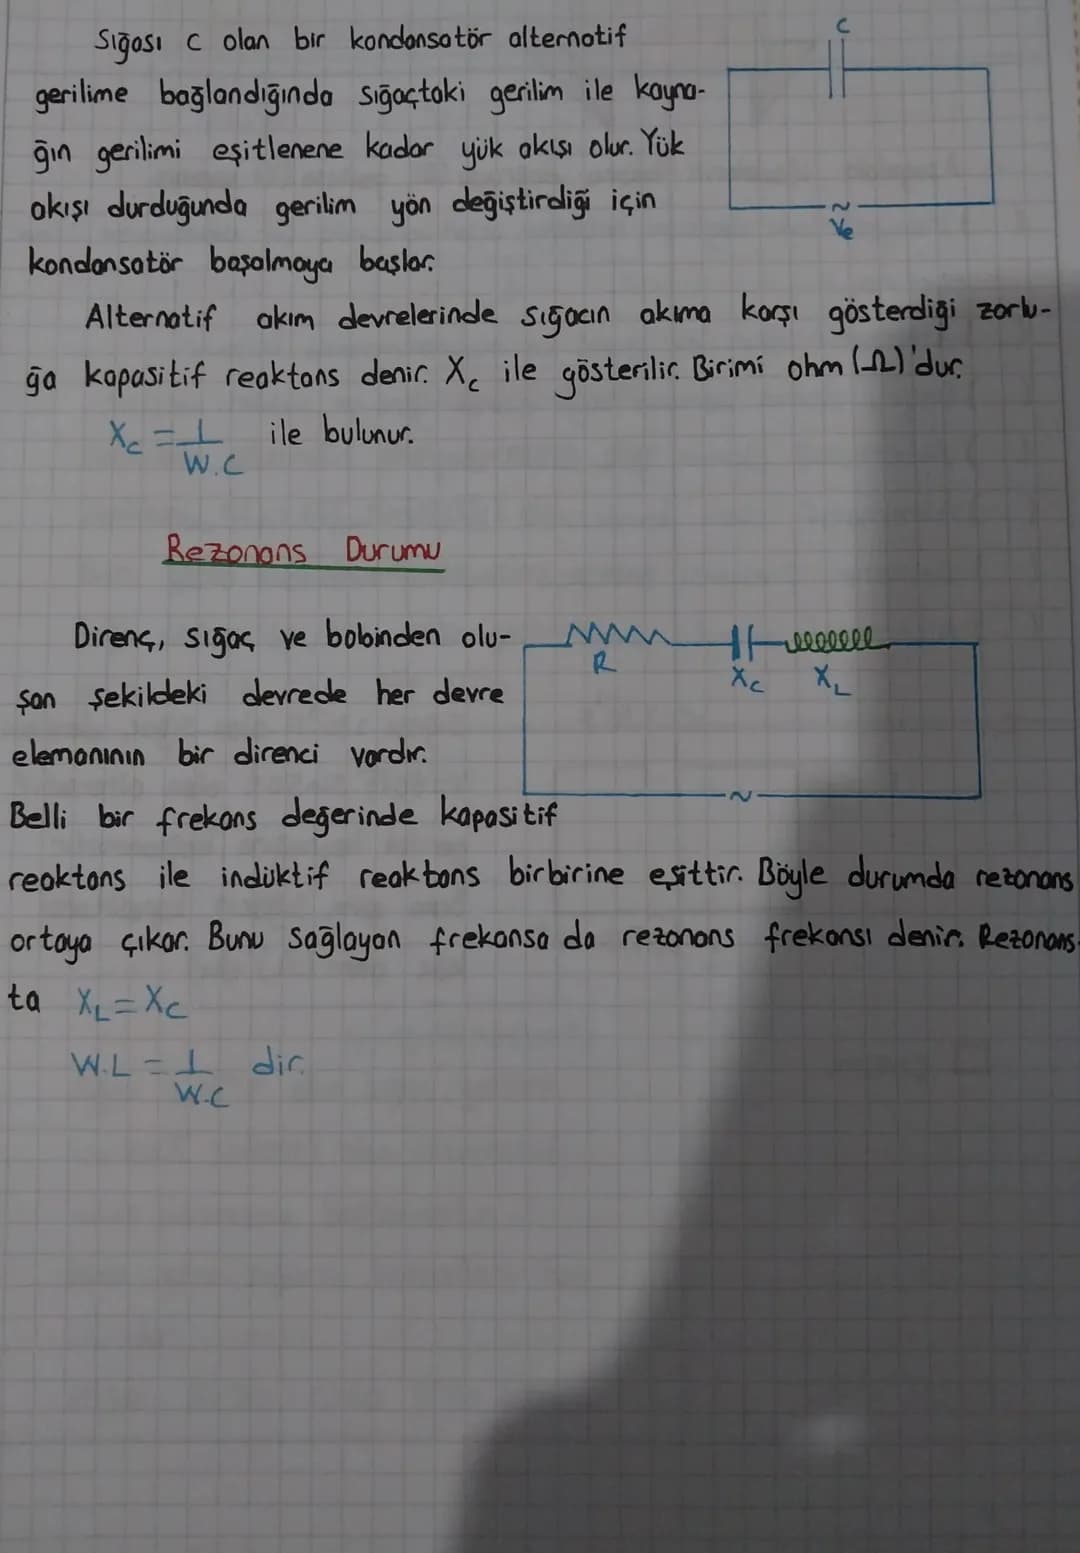 C
Sığası C olan bir kondansatör alternatif
gerilime bağlandığında sığaçtaki gerilim ile kayna-
ğın gerilimi eşitlenene kadar yük akışı olur. Yük
akışı durduğunda gerilim yön değiştirdiği için
~
Ve
kondansatör boşalmaya başlar.
Alternatif akım devrelerinde sığacın akıma karşı gösterdiği zorlu-
ğa kapasitif reaktans denir. Xc ile gösterilir. Birimi ohm (Ω)'dur.
Xc = 1/W.C ile bulunur.
Rezonans Durumu
Direnç, sığaç ve bobinden olu-
R Xc XL
şan şekildeki devrede her devre
elemanının bir direnci vardır.
~
Belli bir frekans değerinde kapasitif
reaktans ile indüktif reaktans birbirine eşittir. Böyle durumda rezonans
ortaya çıkar. Bunu sağlayan frekansa da rezonans frekansı denir. Rezonans-
ta XL = Xc
W.L = 1/W.C dir.